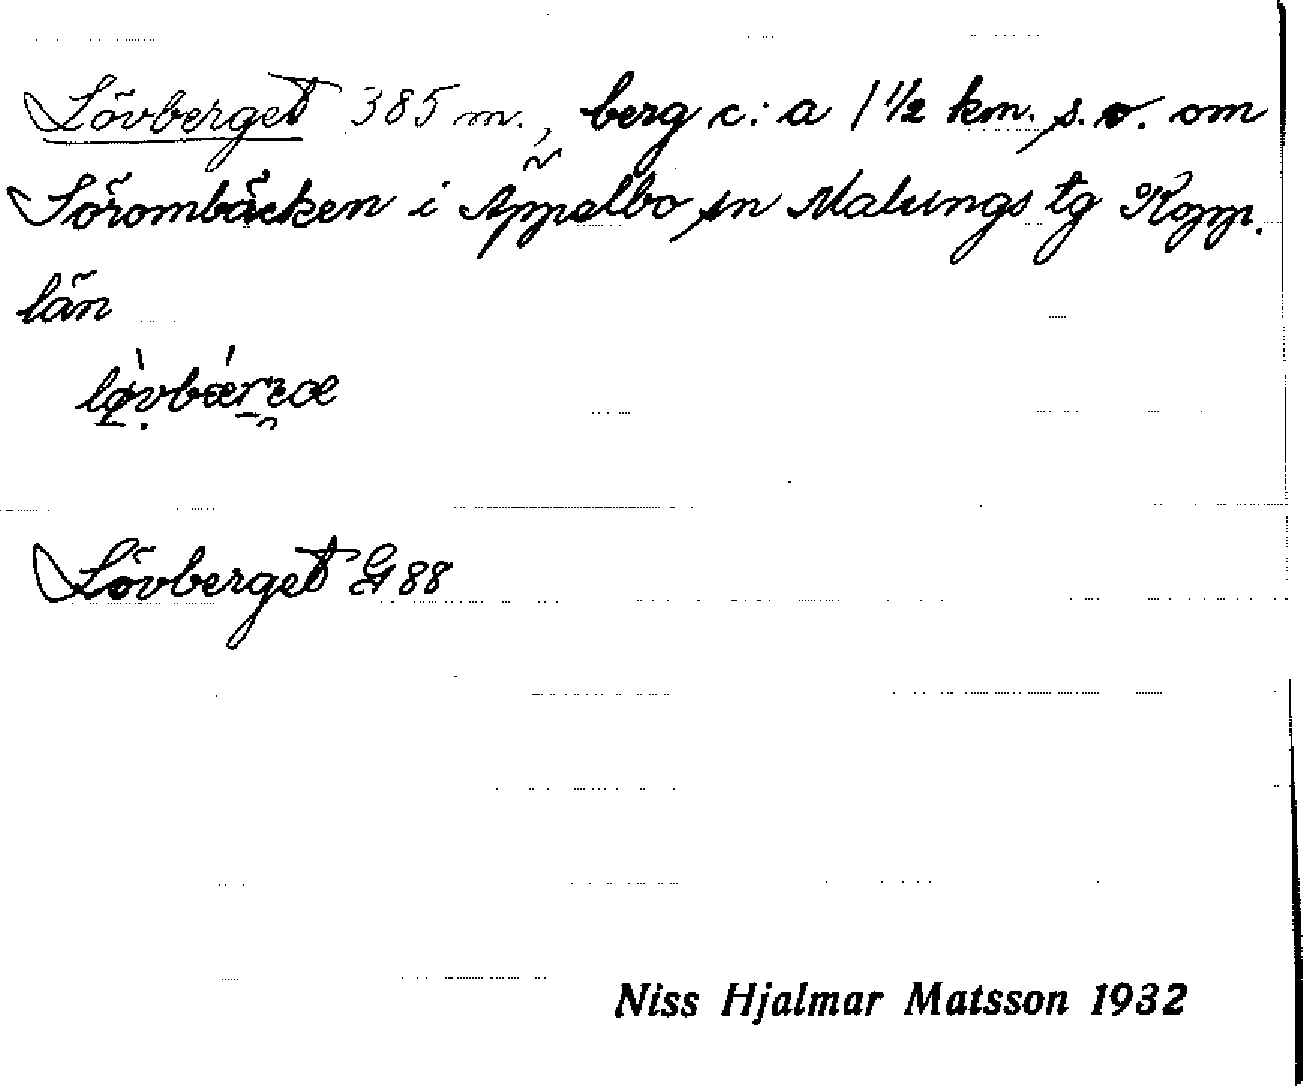 Lövberget 385 m., berg c:a 1 ½ km. s.v. om
Sörombäcken i Äppelbo sn Malungs tg Kopp.
län
Lövberget G 88
Niss Hjalmar Matsson 1932